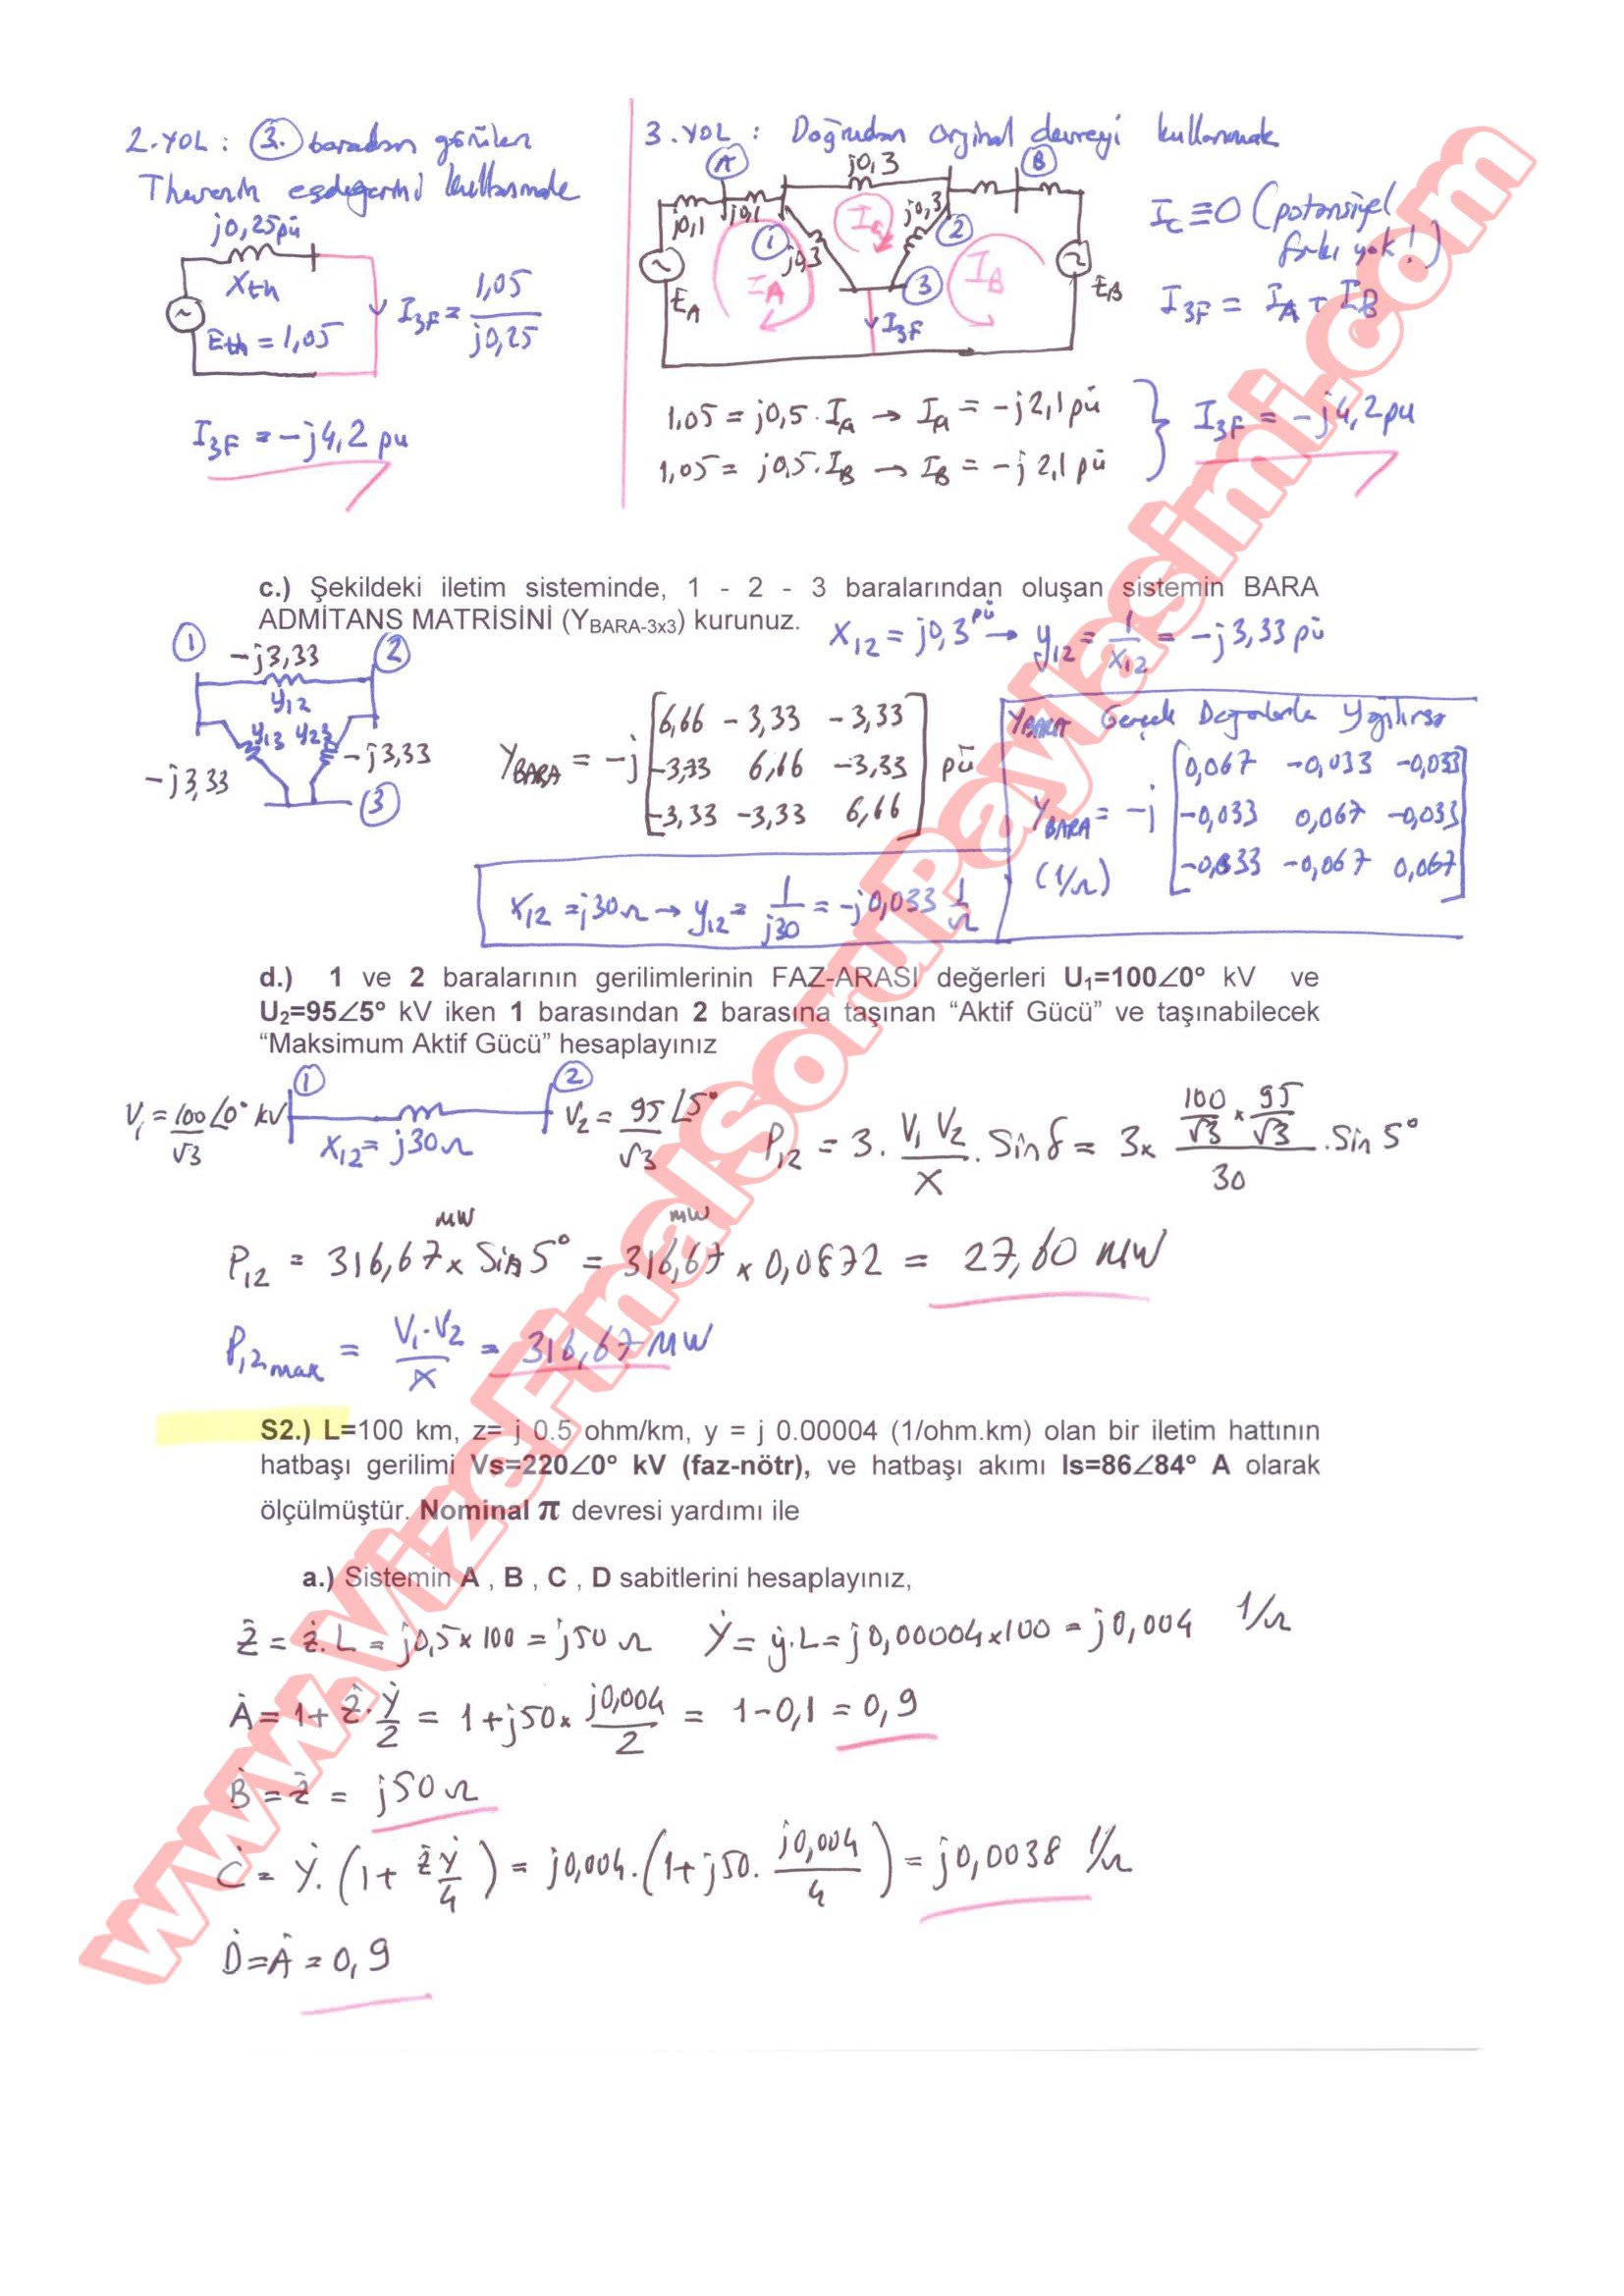 2.YOL : 3. baradan görülen
Thevenin eşdeğerini kullanmak
j0,25pü
Xth
Eth = 1,05
I3F = 1,05 / j0,25
I3F = -j4,2 pu
3.YOL : Doğrudan orjinal devreyi kullanmak
A
j0,3
B
j0,1
j0,1
Ic
j0,3
1
j0,3
2
IA
3
IB
EA
I3F
EB
Ic ≡ 0 (potansiyel
farkı yok!)
I3F = IA + IB
1,05 = j0,5 . IA → IA = -j2,1 pü
1,05 = j0,5 . IB → IB = -j2,1 pü
I3F = -j4,2 pu
c.) Şekildeki iletim sisteminde, 1 - 2 - 3 baralarından oluşan sistemin BARA
ADMİTANS MATRİSİNİ (YBARA-3x3) kurunuz.
X12 = j0,3 pü → y12 = 1 / X12 = -j3,33 pü
1
-j3,33
2
y12
y13 y23
-j3,33
-j3,33
3
YBARA = -j [ 6,66 -3,33 -3,33
-3,33 6,66 -3,33
-3,33 -3,33 6,66 ] pü
X12 = j30Ω → y12 = 1 / j30 = -j0,033 1/Ω
YBARA Gerçek Değerlerle Yazılırsa
YBARA = -j [ 0,067 -0,033 -0,033
-0,033 0,067 -0,033
-0,033 -0,067 0,067 ]
(1/Ω)
d.) 1 ve 2 baralarının gerilimlerinin FAZ-ARASI değerleri U1=100∠0° kV ve
U2=95∠5° kV iken 1 barasından 2 barasına taşınan “Aktif Gücü” ve taşınabilecek
“Maksimum Aktif Gücü” hesaplayınız
1
2
V1 = 100/√3 ∠0° kV
X12 = j30Ω
V2 = 95/√3 ∠5°
P12 = 3 . V1 V2 / X . Sin δ = 3x (100/√3 x 95/√3) / 30 . Sin 5°
P12 = 316,67 MW x Sin 5° = 316,67 MW x 0,0872 = 27,60 MW
P12max = V1.V2 / X = 316,67 MW
S2.) L=100 km, z= j 0.5 ohm/km, y = j 0.00004 (1/ohm.km) olan bir iletim hattının
hatbaşı gerilimi Vs=220∠0° kV (faz-nötr), ve hatbaşı akımı Is=86∠84° A olarak
ölçülmüştür. Nominal π devresi yardımı ile
a.) Sistemin A , B , C , D sabitlerini hesaplayınız,
Ż = ż.L = j0,5x100 = j50 Ω Ẏ = ẏ.L = j0,00004x100 = j0,004 1/Ω
Ȧ = 1+ Ż.Ẏ/2 = 1+j50x j0,004/2 = 1-0,1 = 0,9
Ḃ = Ż = j50 Ω
Ċ = Ẏ.(1+ ŻẎ/4) = j0,004.(1+j50. j0,004/4) = j0,0038 1/Ω
Ḋ=Ȧ = 0,9
www.VizeFinalSoruPaylasimi.com